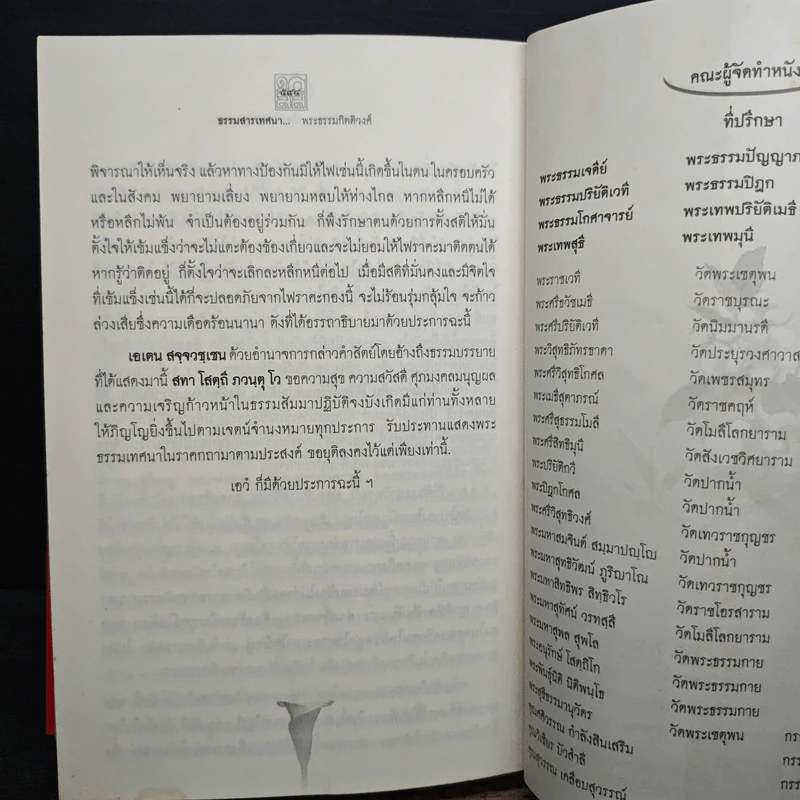 ๕๔๔
ธรรมสารเทศนา... พระธรรมกิตติวงศ์
พิจารณาให้เห็นจริง แล้วหาทางป้องกันมิให้ไฟเช่นนี้เกิดขึ้นในตน ในครอบครัว
และในสังคม พยายามเลี่ยง พยายามหลบให้ห่างไกล หากหลีกหนีไม่ได้
หรือหลีกไม่พ้น จำเป็นต้องอยู่ร่วมกัน ก็พึงรักษาตนด้วยการตั้งสติให้มั่น
ตั้งใจให้เข้มแข็งว่าจะไม่แตะต้องข้องเกี่ยวและจะไม่ยอมให้ไฟราคะมาติดตนได้
หากรู้ว่าติดอยู่ ก็ตั้งใจว่าจะเลิกละหลีกหนีต่อไป เมื่อมีสติที่มั่นคงและมีจิตใจ
ที่เข้มแข็งเช่นนี้ได้ก็จะปลอดภัยจากไฟราคะกองนี้ จะไม่ร้อนรุ่มกลุ้มใจ จะก้าว
ล่วงเสียซึ่งความเดือดร้อนนานา ดังที่ได้อรรถาธิบายมาด้วยประการฉะนี้
เอเตน สจฺจวชฺเชน ด้วยอำนาจการกล่าวคำสัตย์โดยอ้างถึงธรรมบรรยาย
ที่ได้แสดงมานี้ สทา โสตฺถี ภวนฺตุ โว ขอความสุข ความสวัสดี ศุภมงคลมนุญผล
และความเจริญก้าวหน้าในธรรมสัมมาปฏิบัติจงบังเกิดมีแก่ท่านทั้งหลาย
ให้ภิญโญยิ่งขึ้นไปตามเจตน์จำนงหมายทุกประการ รับประทานแสดงพระ
ธรรมเทศนาในราคกถามาตามประสงค์ ขอยุติลงคงไว้แต่เพียงเท่านี้.
เอวํ ก็มีด้วยประการฉะนี้ ฯ
คณะผู้จัดทำหนัง
ที่ปรึกษา
พระธรรมเจดีย์ พระธรรมปัญญาภ
พระธรรมปริยัติเวที พระธรรมปิฎก
พระธรรมโกศาจารย์ พระเทพปริยัติเมธี
พระเทพสุธี พระเทพมุนี
พระราชเวที วัดพระเชตุพน
พระศรีธวัชเมธี วัดราชบุรณะ
พระศรีปริยัติเวที วัดนิมมานรดี
พระวิสุทธิภัทรธาดา วัดประยุรวงศาวาส
พระศรีวิสุทธิโกศล วัดเพชรสมุทร
พระเมธีสุตาภรณ์ วัดราชคฤห์
พระศรีสุธรรมโมลี วัดโมลีโลกยาราม
พระศรีสิทธิมุนี วัดสังเวชวิศยาราม
พระปริยัติกวี วัดปากน้ำ
พระปิฎกโกศล วัดปากน้ำ
พระศรีวิสุทธิวงศ์ วัดเทวราชกุญชร
พระมหาสมจินต์ สมฺมาปญฺโญ วัดปากน้ำ
พระมหาสุทธิวัฒน์ ภูริญาโณ วัดเทวราชกุญชร
พระมหาสิทธิพร สิทฺธิวโร วัดราชโอรสาราม
พระมหาสุทัศน์ วรทสฺสี วัดโมลีโลกยาราม
พระมหาสุพล สุพโล วัดพระธรรมกาย
พระอนุรักษ์ โสตฺถิโก วัดพระธรรมกาย
พระพันธุ์นิติ นิติพนฺโธ วัดพระธรรมกาย
พระสุธีธรรมานุวัตร วัดพระเชตุพน กร
คุณศศิวรรณ กำลังสินเสริม กรร
คุณวิเชียร บัวสำลี กรร
คุณสุวรรณ เคลือบสุวรรณ์